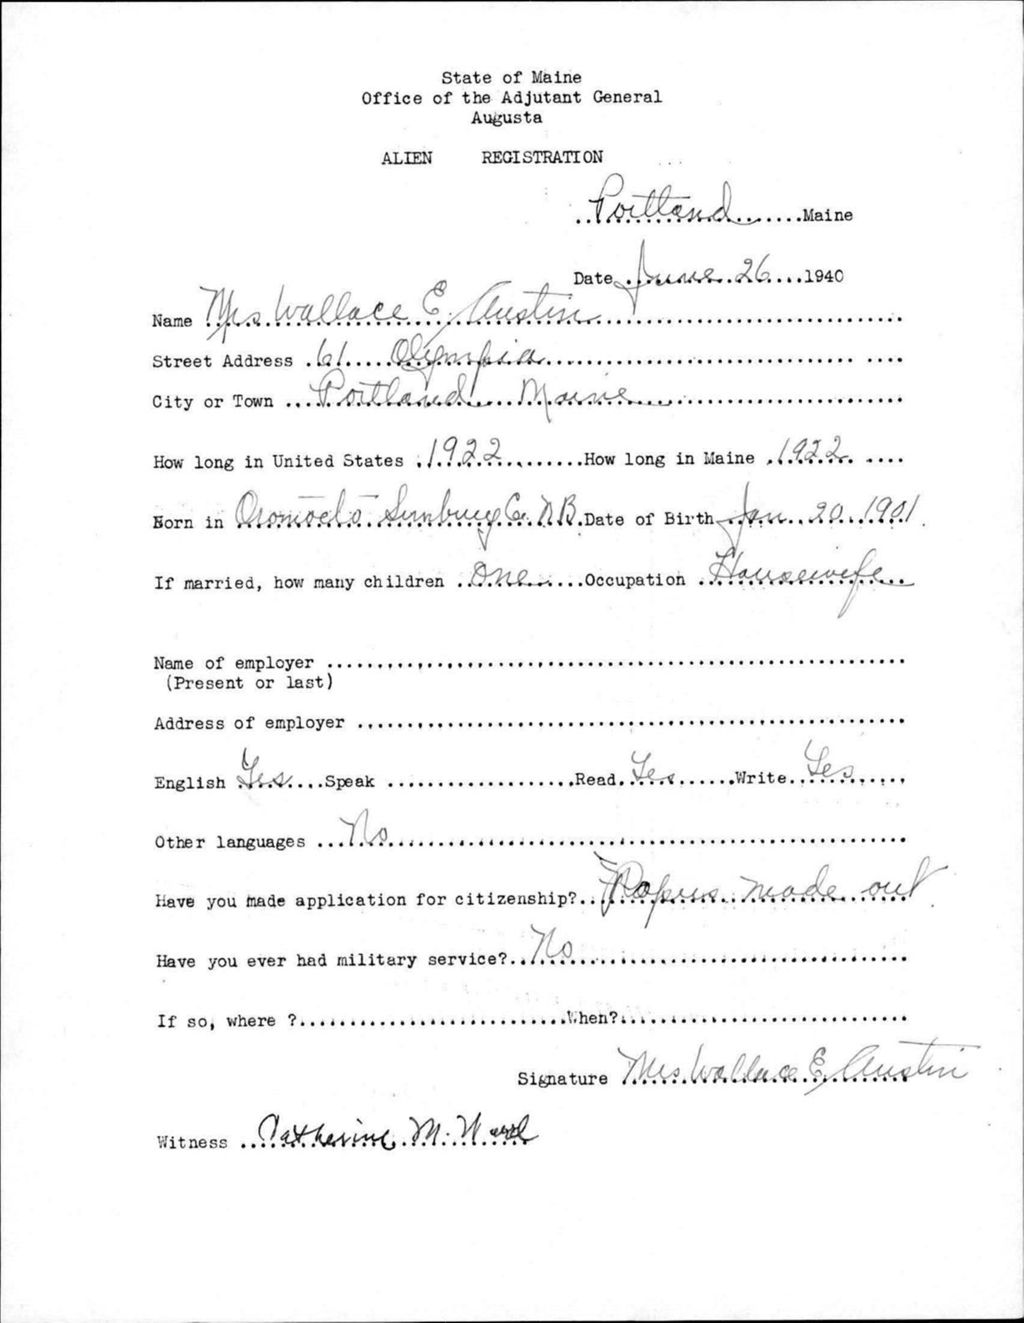 State of Maine
Office of the Adjutant General
Augusta
ALIEN REGISTRATION
Portland Maine
Date June 26 1940
Name Mrs Wallace E. Austin
Street Address 61 Olympia
City or Town Portland Maine
How long in United States 1922 How long in Maine 1922
Born in Oromocto Sunbury Co. N.B. Date of Birth Jan. 20. 1901
If married, how many children One Occupation Housewife
Name of employer
(Present or last)
Address of employer
English Yes Speak Read Yes Write Yes
Other languages No
Have you made application for citizenship? made out
Have you ever had military service? No
If so, where ? When?
Signature Mrs. Wallace E. Austin
Witness Catherine M. Ward